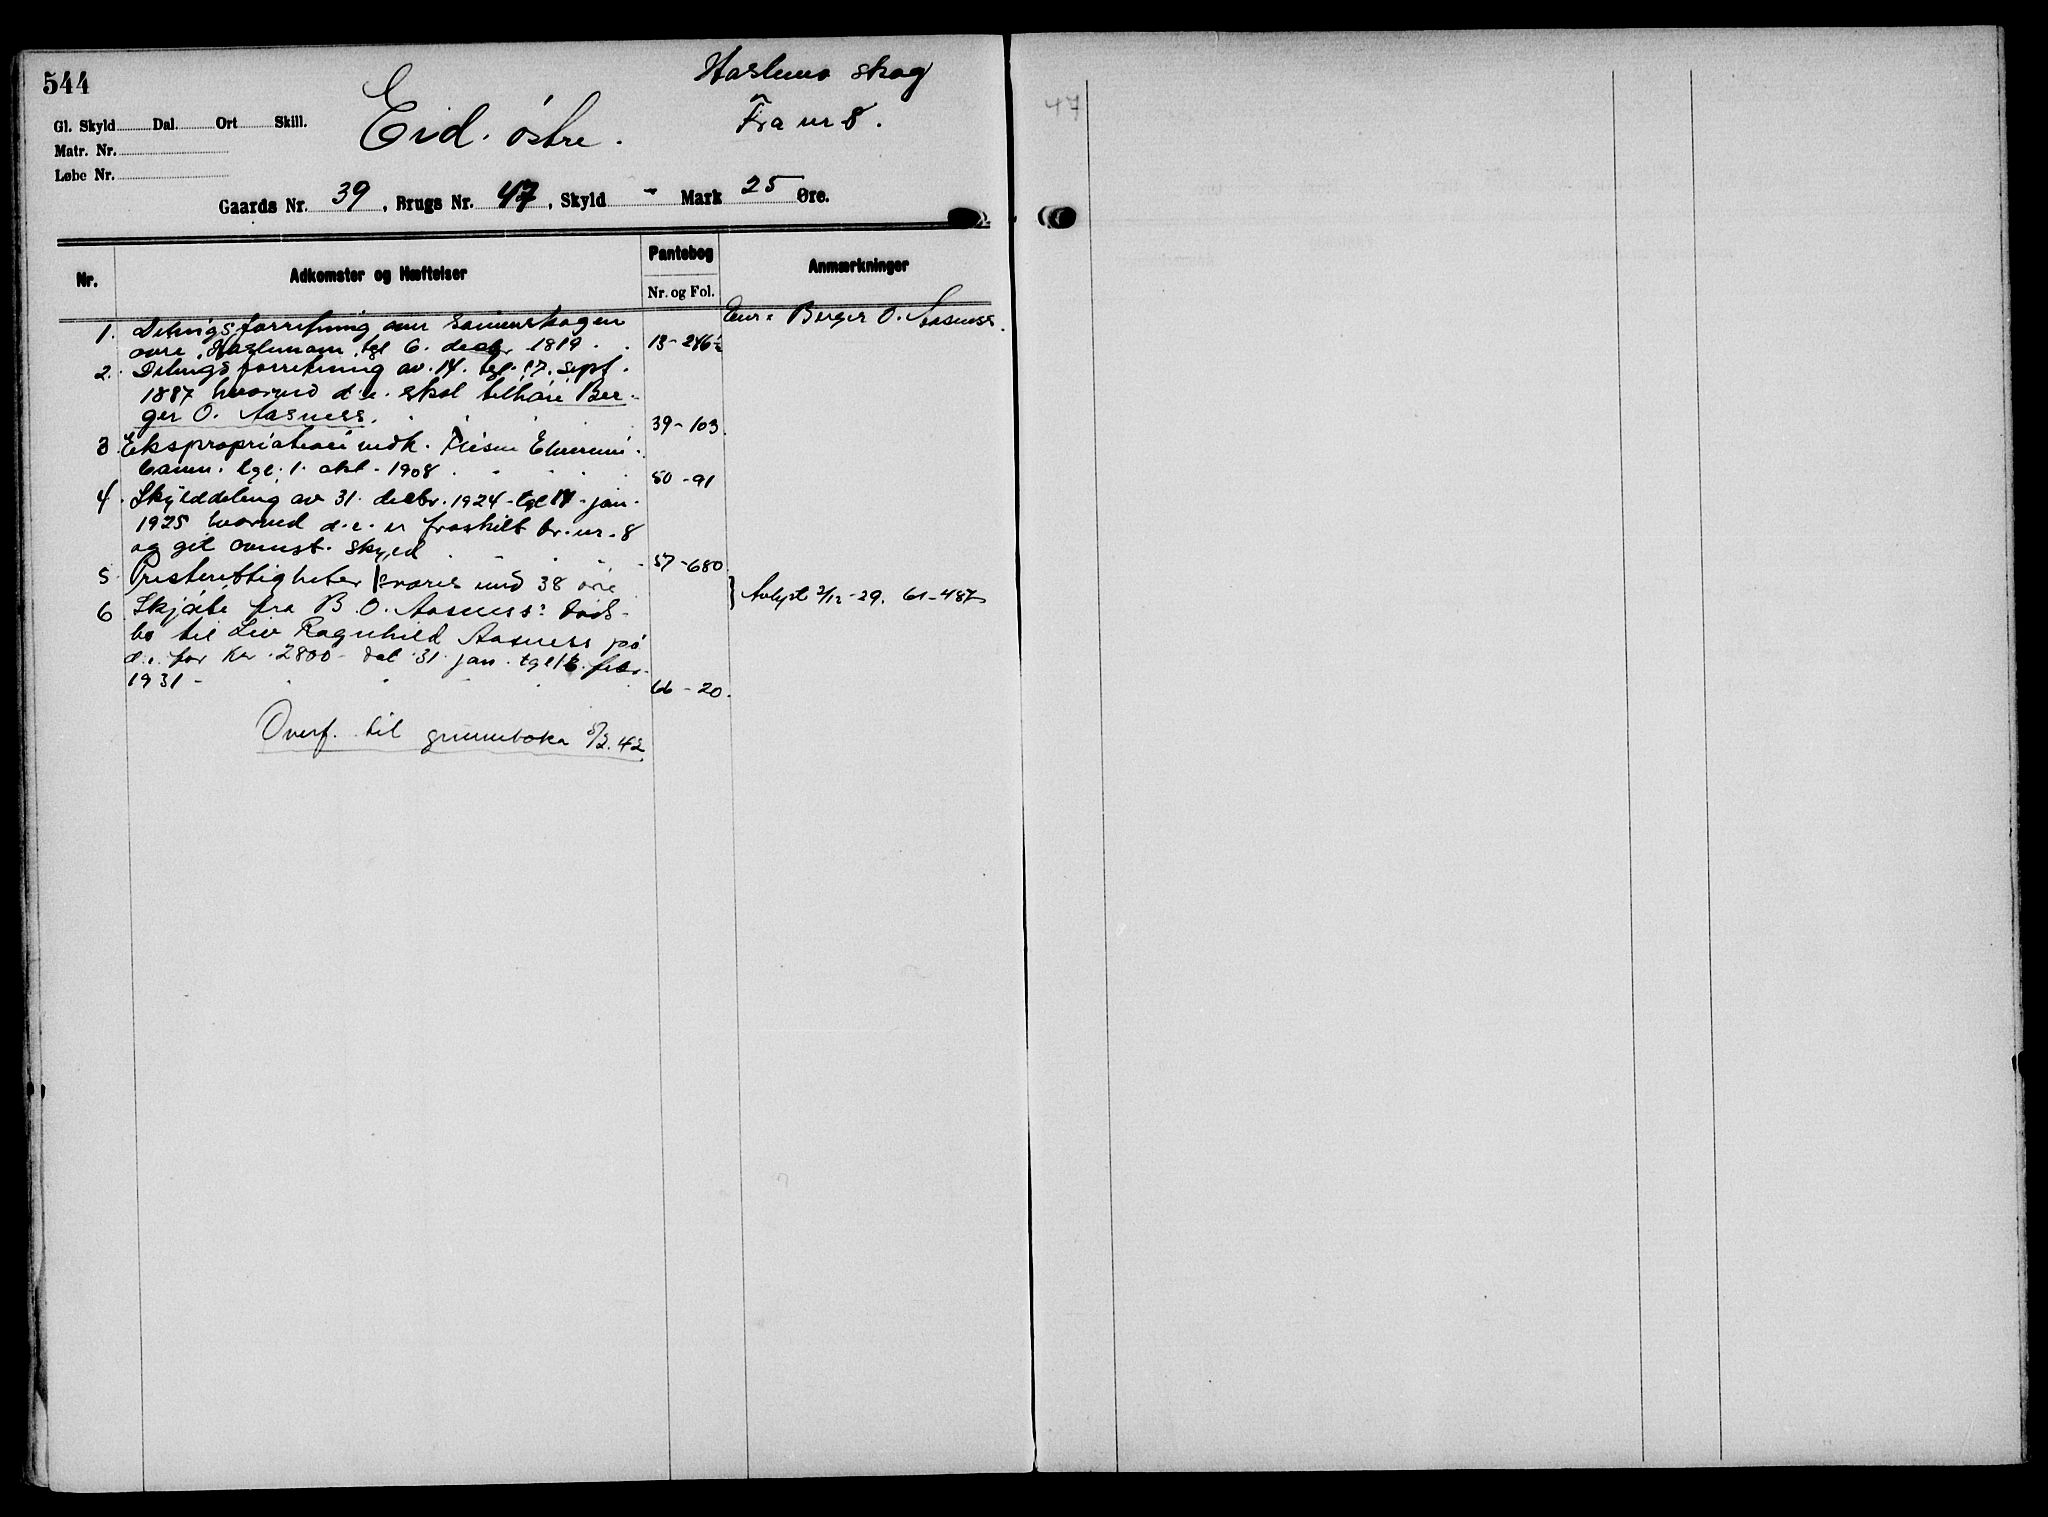 544
Haslemo skog
Gl. Skyld Dal. Ort Skill.
Eid. østre.
Fra nr 8.
Matr. Nr.
Løbe Nr.
Gaards Nr. 39, Brugs Nr. 47, Skyld - Mark 25 Øre.
Nr. Adkomster og Hæftelser Pantebog Nr. og Fol. Anmærkninger
Eier: Berger O. Aasness.
1. Delingsforretning over
øvre Haslemoen, tgl 6. decbr 1819. 13-246½
2. Delingsforretning av 14. tgl. 17. sept.
1887 hvorved d.e. skal tilhøre Ber-
ger O. Aasness. 39-103.
3. Ekspropriation vedk. Flisen Elverum-
banen. tgl. 1. okt. 1908 50-91
4. Skylddeling av 31. decbr. 1924 - tgl 14. jan.
1925 hvorved d.e. er fraskilt br. nr. 8
og git ovenst. skyld 57-680
5. Presterettigheter svares med 38 øre } Avlyst 2/12-29. 61-487
6. Skjøte fra B. O. Aasness' døds-
bo til Liv Ragnhild Aasness på
d.e. for kr. 2800 - dat. 31. jan. tgl 16. febr.
1931 - 66-20.
Overf. til grunnboka 5/2.42
47